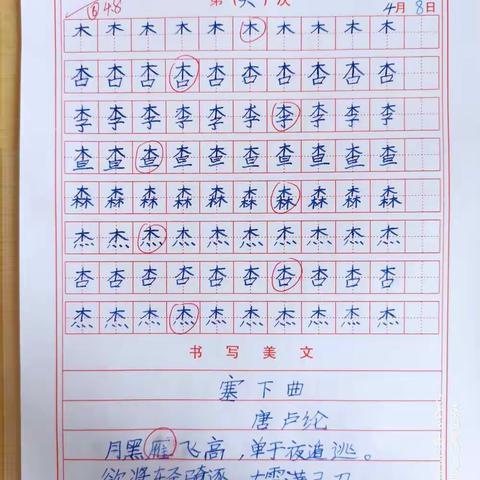 4.8 第 次 4月8日
木木木木木木木木木木
杏杏杏杏杏杏杏杏杏杏
李李李李李李李李李李
查查查查查查查查查查
森森森森森森森森森森
杰杰杰杰杰杰杰杰杰杰
杏杏杏杏杏杏杏杏杏杏
杰杰杰杰杰杰杰杰杰杰
书写美文
塞下曲
唐卢纶
月黑雁飞高，单于夜逃。